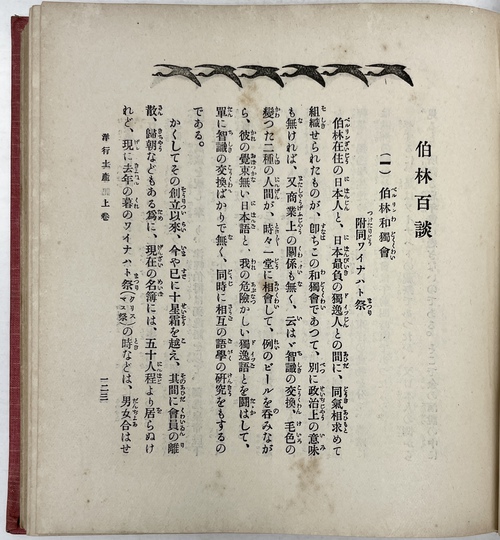 伯林百談
(一) 伯林和獨會
附同ワイナハト祭
伯林在住の日本人と、日本贔負の獨逸人との間に、同氣相求めて
組織せられたものが、卽ちこの和獨會であつて、別に政治上の意味
も無ければ、又商業上の關係も無く、云はゞ智識の交換、毛色の
變つた二種の人間が、時々一堂に相會して、例のビールを呑みなが
ら、彼の覺束無い日本語と、我の危險かしい獨逸語とを鬪はして、
單に智識の交換ばかりで無く、同時に相互の語學の硏究をもするの
である。
かくしてその創立以來、今や已に十星霜を越え、其間に會員の離
散、歸朝などもある爲に、現在の名簿には、五十人程より居らぬけ
れど、現に去年の暮のワイナハト祭(クリスマス祭)の時などは、男女合はせ
洋行土產 上卷
一二三